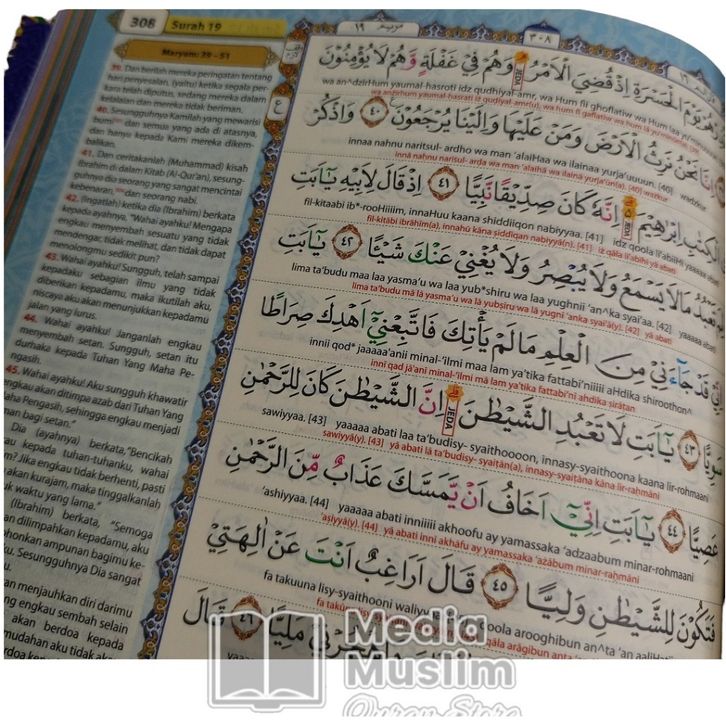 308 Surah 19
Maryam: 39 – 51
39. Dan berilah mereka peringatan tentang
hari penyesalan, (yaitu) ketika segala per-
kara telah diputus, sedang mereka dalam
kelalaian dan mereka tidak beriman.
40. Sesungguhnya Kamilah yang mewarisi
bumi dan semua yang ada di atasnya,
dan hanya kepada Kami mereka dikem-
balikan.
41. Dan ceritakanlah (Muhammad) kisah
Ibrahim di dalam Kitab (Al-Qur'an), sesung-
guhnya dia seorang yang sangat mencintai
kebenaran, dan seorang nabi.
42. (Ingatlah) ketika dia (Ibrahim) berkata
kepada ayahnya, "Wahai ayahku! Mengapa
engkau menyembah sesuatu yang tidak
mendengar, tidak melihat, dan tidak dapat
menolongmu sedikit pun?
43. Wahai ayahku! Sungguh, telah sampai
kepadaku sebagian ilmu yang tidak
diberikan kepadamu, maka ikutilah aku,
niscaya aku akan menunjukkan kepadamu
jalan yang lurus.
44. Wahai ayahku! Janganlah engkau
menyembah setan. Sungguh, setan itu
durhaka kepada Tuhan Yang Maha Pe-
ngasih.
45. Wahai ayahku! Aku sungguh khawatir
engkau akan ditimpa azab dari Tuhan Yang
Maha Pengasih, sehingga engkau menjadi
man bagi setan."
Dia (ayahnya) berkata, "Bencikah
kau kepada tuhan-tuhanku, wahai
m? Jika engkau tidak berhenti, pasti
akan kurajam, maka tinggalkanlah
uk waktu yang lama."
(Ibrahim) berkata, "Semoga
an dilimpahkan kepadamu, aku
ohonkan ampunan bagimu ke-
u. Sesungguhnya Dia sangat
an menjauhkan diri darimu
ng engkau sembah selain
berdoa kepada
mudahan aku tidak akan
مريم ١٩
٣٠٨
هُمْ يَوْمَ الْحَسْرَةِ اِذْ قُضِيَ الْاَمْرُ وَهُمْ فِيْ غَفْلَةٍ وَّهُمْ لَا يُؤْمِنُوْنَ
wa an^dzirHum yaumal-hasroti idz qudhiyal-amr, wa Hum fii ghoflatiw wa Hum laa
اِنَّا نَحْنُ نَرِثُ الْاَرْضَ وَمَنْ عَلَيْهَا وَاِلَيْنَا يُرْجَعُوْنَ ٤٠ وَاذْكُرْ
innaa nahnu naritsul- ardho wa man 'alaiHaa wa ilainaa yurja'uuun. [40] wadzkur
innā naḥnu naritsul- arḍa wa man 'alaihā wa ilainā yurja'ūn(a). [40] ważkur
الْكِتٰبِ اِبْرٰهِيْمَ اِنَّهٗ كَانَ صِدِّيْقًا نَّبِيًّا ٤١ اِذْ قَالَ لِاَبِيْهِ يٰٓاَبَتِ
fil-kitaabi ib*-rooHiiim, innaHuu kaana shiddiiqon nabiyyaa. [41] idz qoola li'abiiHi yaaaaa abati
fil-kitābi ibrāhīm(a), innahū kāna ṣiddīqan nabiyyā(n). [41] iż qāla li'abīhi yā abati
تَعْبُدُ مَا لَا يَسْمَعُ وَلَا يُبْصِرُ وَلَا يُغْنِيْ عَنْكَ شَيْـًٔا ٤٢ يٰٓاَبَتِ
lima ta'budu maa laa yasma'u wa laa yub*shiru wa laa yughnii 'an^ka syai'aa. [42] yaaaaa abati
lima ta'budu mā lā yasma'u wa lā yubṣiru wa lā yugnī 'anka syai'ā(y). [42] yā abati
اِنِّيْ قَدْ جَاۤءَنِيْ مِنَ الْعِلْمِ مَا لَمْ يَأْتِكَ فَاتَّبِعْنِيْٓ اَهْدِكَ صِرَاطًا
innii qod* jaaaaa'anii minal-'ilmi maa lam ya'tika fattabi'niiiii aHdika shiroothon^
innī qad jā'anī minal-'ilmi mā lam ya'tika fattabi'nī ahdika ṣirāṭan
سَوِيًّا ٤٣ يٰٓاَبَتِ لَا تَعْبُدِ الشَّيْطٰنَ اِنَّ الشَّيْطٰنَ كَانَ لِلرَّحْمٰنِ
JEDA
sawiyyaa. [43] yaaaaa abati laa ta'budisy- syaithooooon, innasy-syaithoona kaana lir-rohmaani
sawiyyā(y). [43] yā abati lā ta'budisy- syaiṭān(a), innasy-syaiṭāna kāna lir-raḥmāni
عَصِيًّا ٤٤ يٰٓاَبَتِ اِنِّيْٓ اَخَافُ اَنْ يَّمَسَّكَ عَذَابٌ مِّنَ الرَّحْمٰنِ
'ashiyyaa. [44] yaaaaa abati inniiiii akhoofu ay yamassaka 'adzaabum minar-rohmaani
'aṣiyyā(y). [44] yā abati innī akhāfu ay yamassaka 'ażābum minar-raḥmāni
فَتَكُوْنَ لِلشَّيْطٰنِ وَلِيًّا ٤٥ قَالَ اَرَاغِبٌ اَنْتَ عَنْ اٰلِهَتِيْ
fa takuuna lisy-syaithooni waliyy qoola arooghibun an^ta 'an aaliHatii
qāla arāgibun anta 'an
قَالَ
Media
Muslim
Quran Store